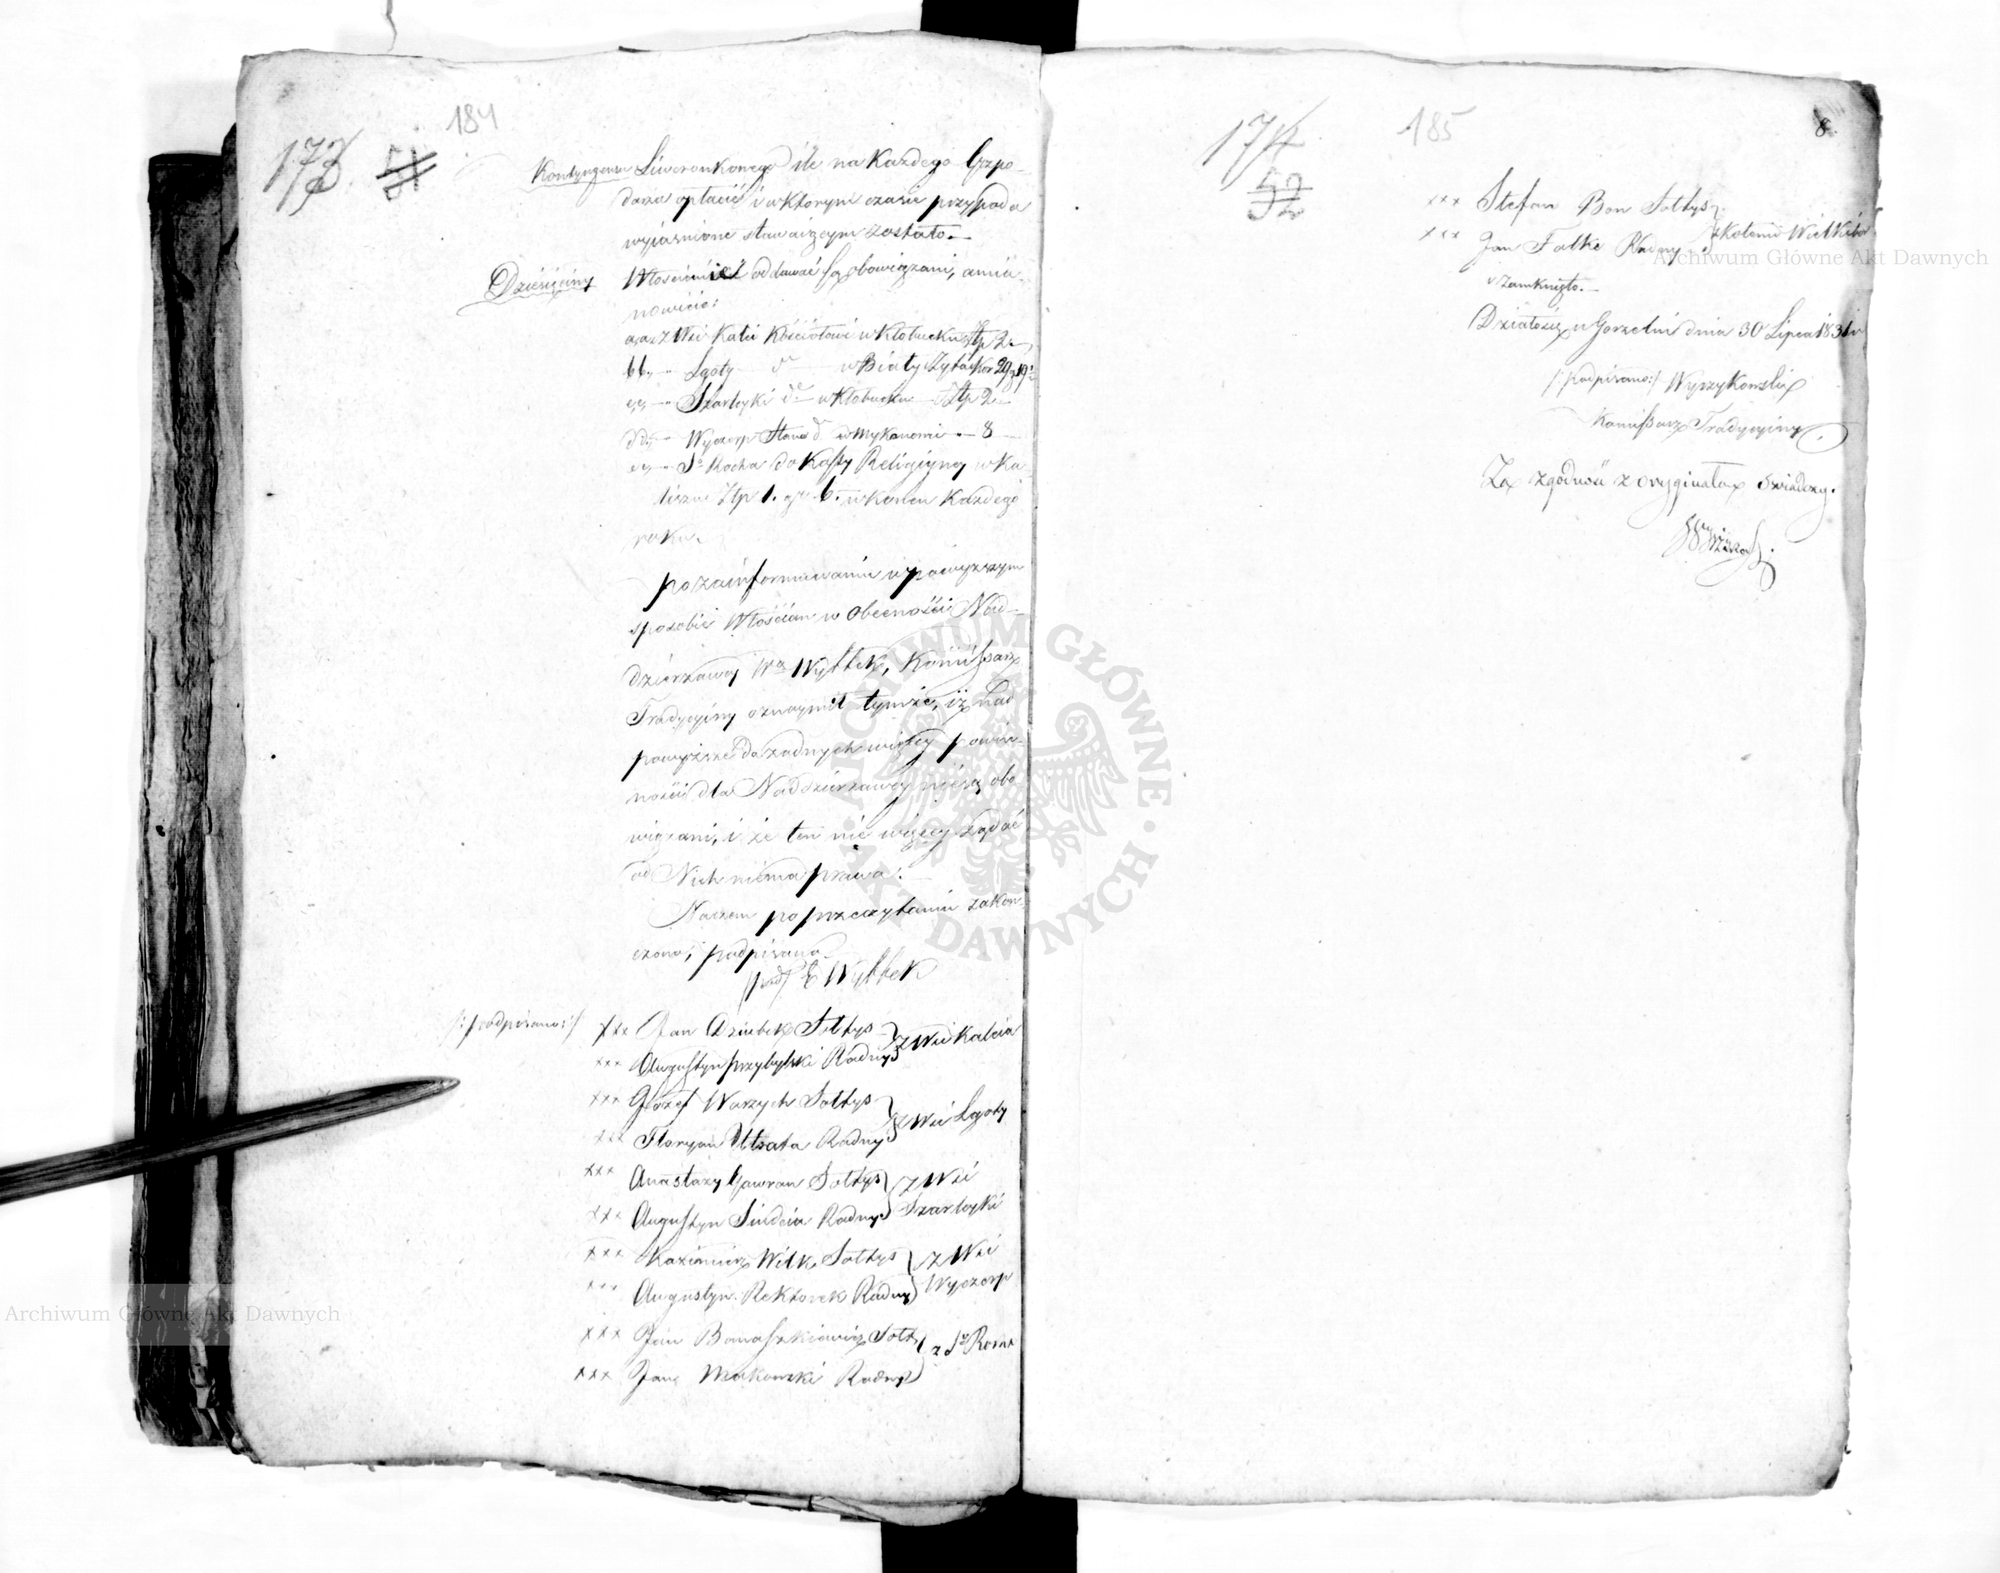 184
173
51
Kontyngensu Liwerunkowego ile na Każdego Gospo-
darza opłacić i w którym czasie przypada
wyjaśnione stawaiącym zostało.—
Dziesięciny Włościanie oddawać są obowiązani, amia-
nowicie:
aa, z Wsi Kalei Kościołowi w Kłobucku Złp 2 —
bb, — " Lgoty do w Biały
cc, — " Szarleyki do w Kłobucku Złp 2 —
dd, — " Wyczerp do w Mykanowie — 8 —
ee, — " So Rocha do Kassy Religiyney w Ka-
liszu Złp 1. gr 6. w końcu Każdego
roku.
po zainformowaniu w powyższym
sposobie Włościan w Obecności Nad-
dzierżawcy Wo Wyttek, Kommissarz
Tradycyiny oznaymił tymże, iż nad
powyższe do żadnych więcey powin-
ności dla Naddzierżawcy nie są obo-
wiązani, i że ten nic więcey żądać
od Nich niema prawa.—
Naczem po przeczytaniu zakoń-
czono, i podpisano
/pod/ E Wyttek
/:podpisano:/ xxx Jan Dziubek Sołtys
xxx Augustyn Przybylski Radny } z Wsi Kaleia
xxx Józef Warzych Sołtys
xxx Floryan Utrata Radny } z Wsi Lgoty
xxx Anastazy Gawron Sołtys } z Wsi
xxx Augustyn Radny Szarleyki
xxx Kazimierz Wilk Sołtys } z Wsi
xxx Augustyn Rektorek Radny Wyczerp
xxx Jan Banaszkiewicz Sołt } z So Rocha
xxx Jan Makowski Radny
8
174
185
52
xxx Stefan Bon Sołtys }
xxx Jan Falke Radny z Kolonii
i zamknięto.—
Działo się w Gorzelni dnia 30 Lipca 1831 r
/:podpisano:/ Wyszykowski
Komissarz Tradycyiny
Za zgodność z oryginałem świadczy.
Archiwum Główne Akt Dawnych
Archiwum Główne Akt Dawnych
ARCHIWUM GŁÓWNE AKT DAWNYCH